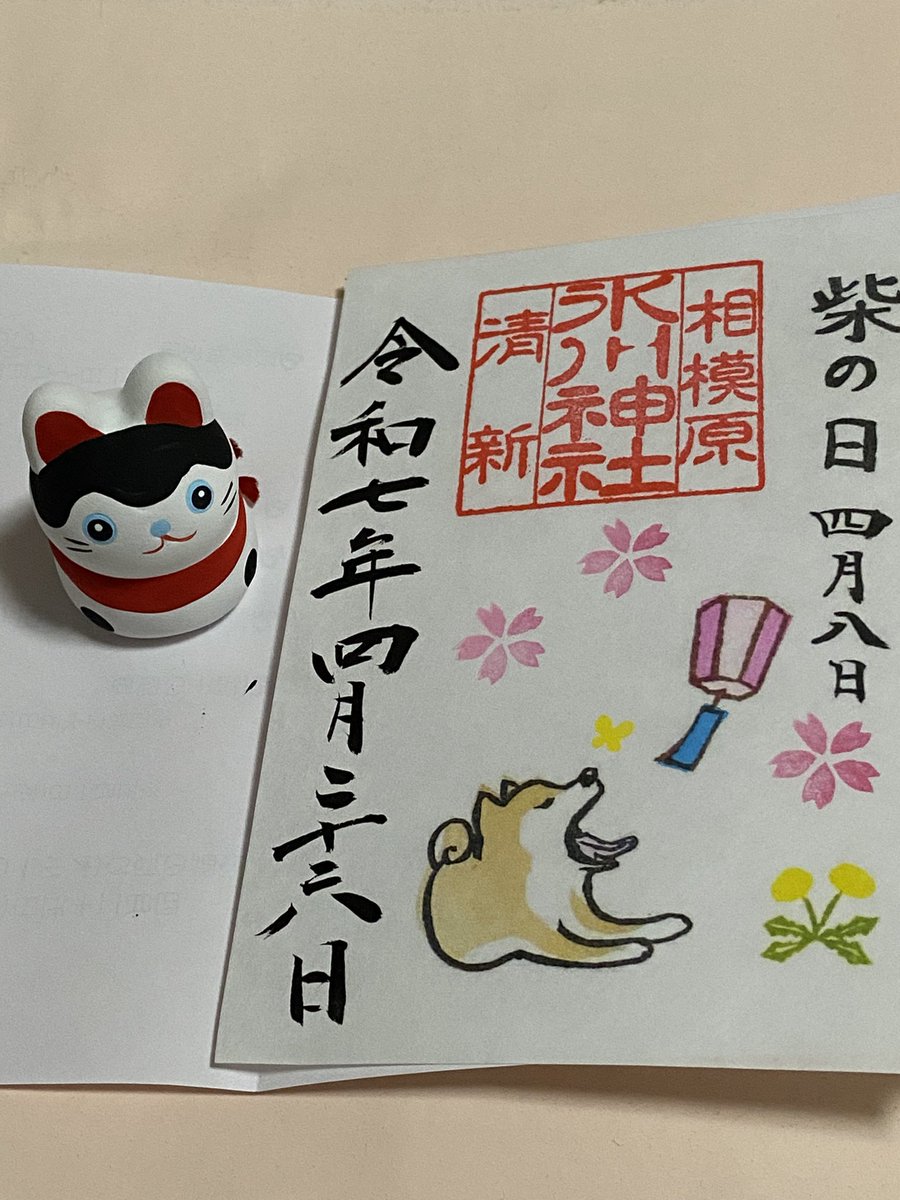 柴の日 四月八日
相模原
氷川神社
清新
令和七年四月二十六日